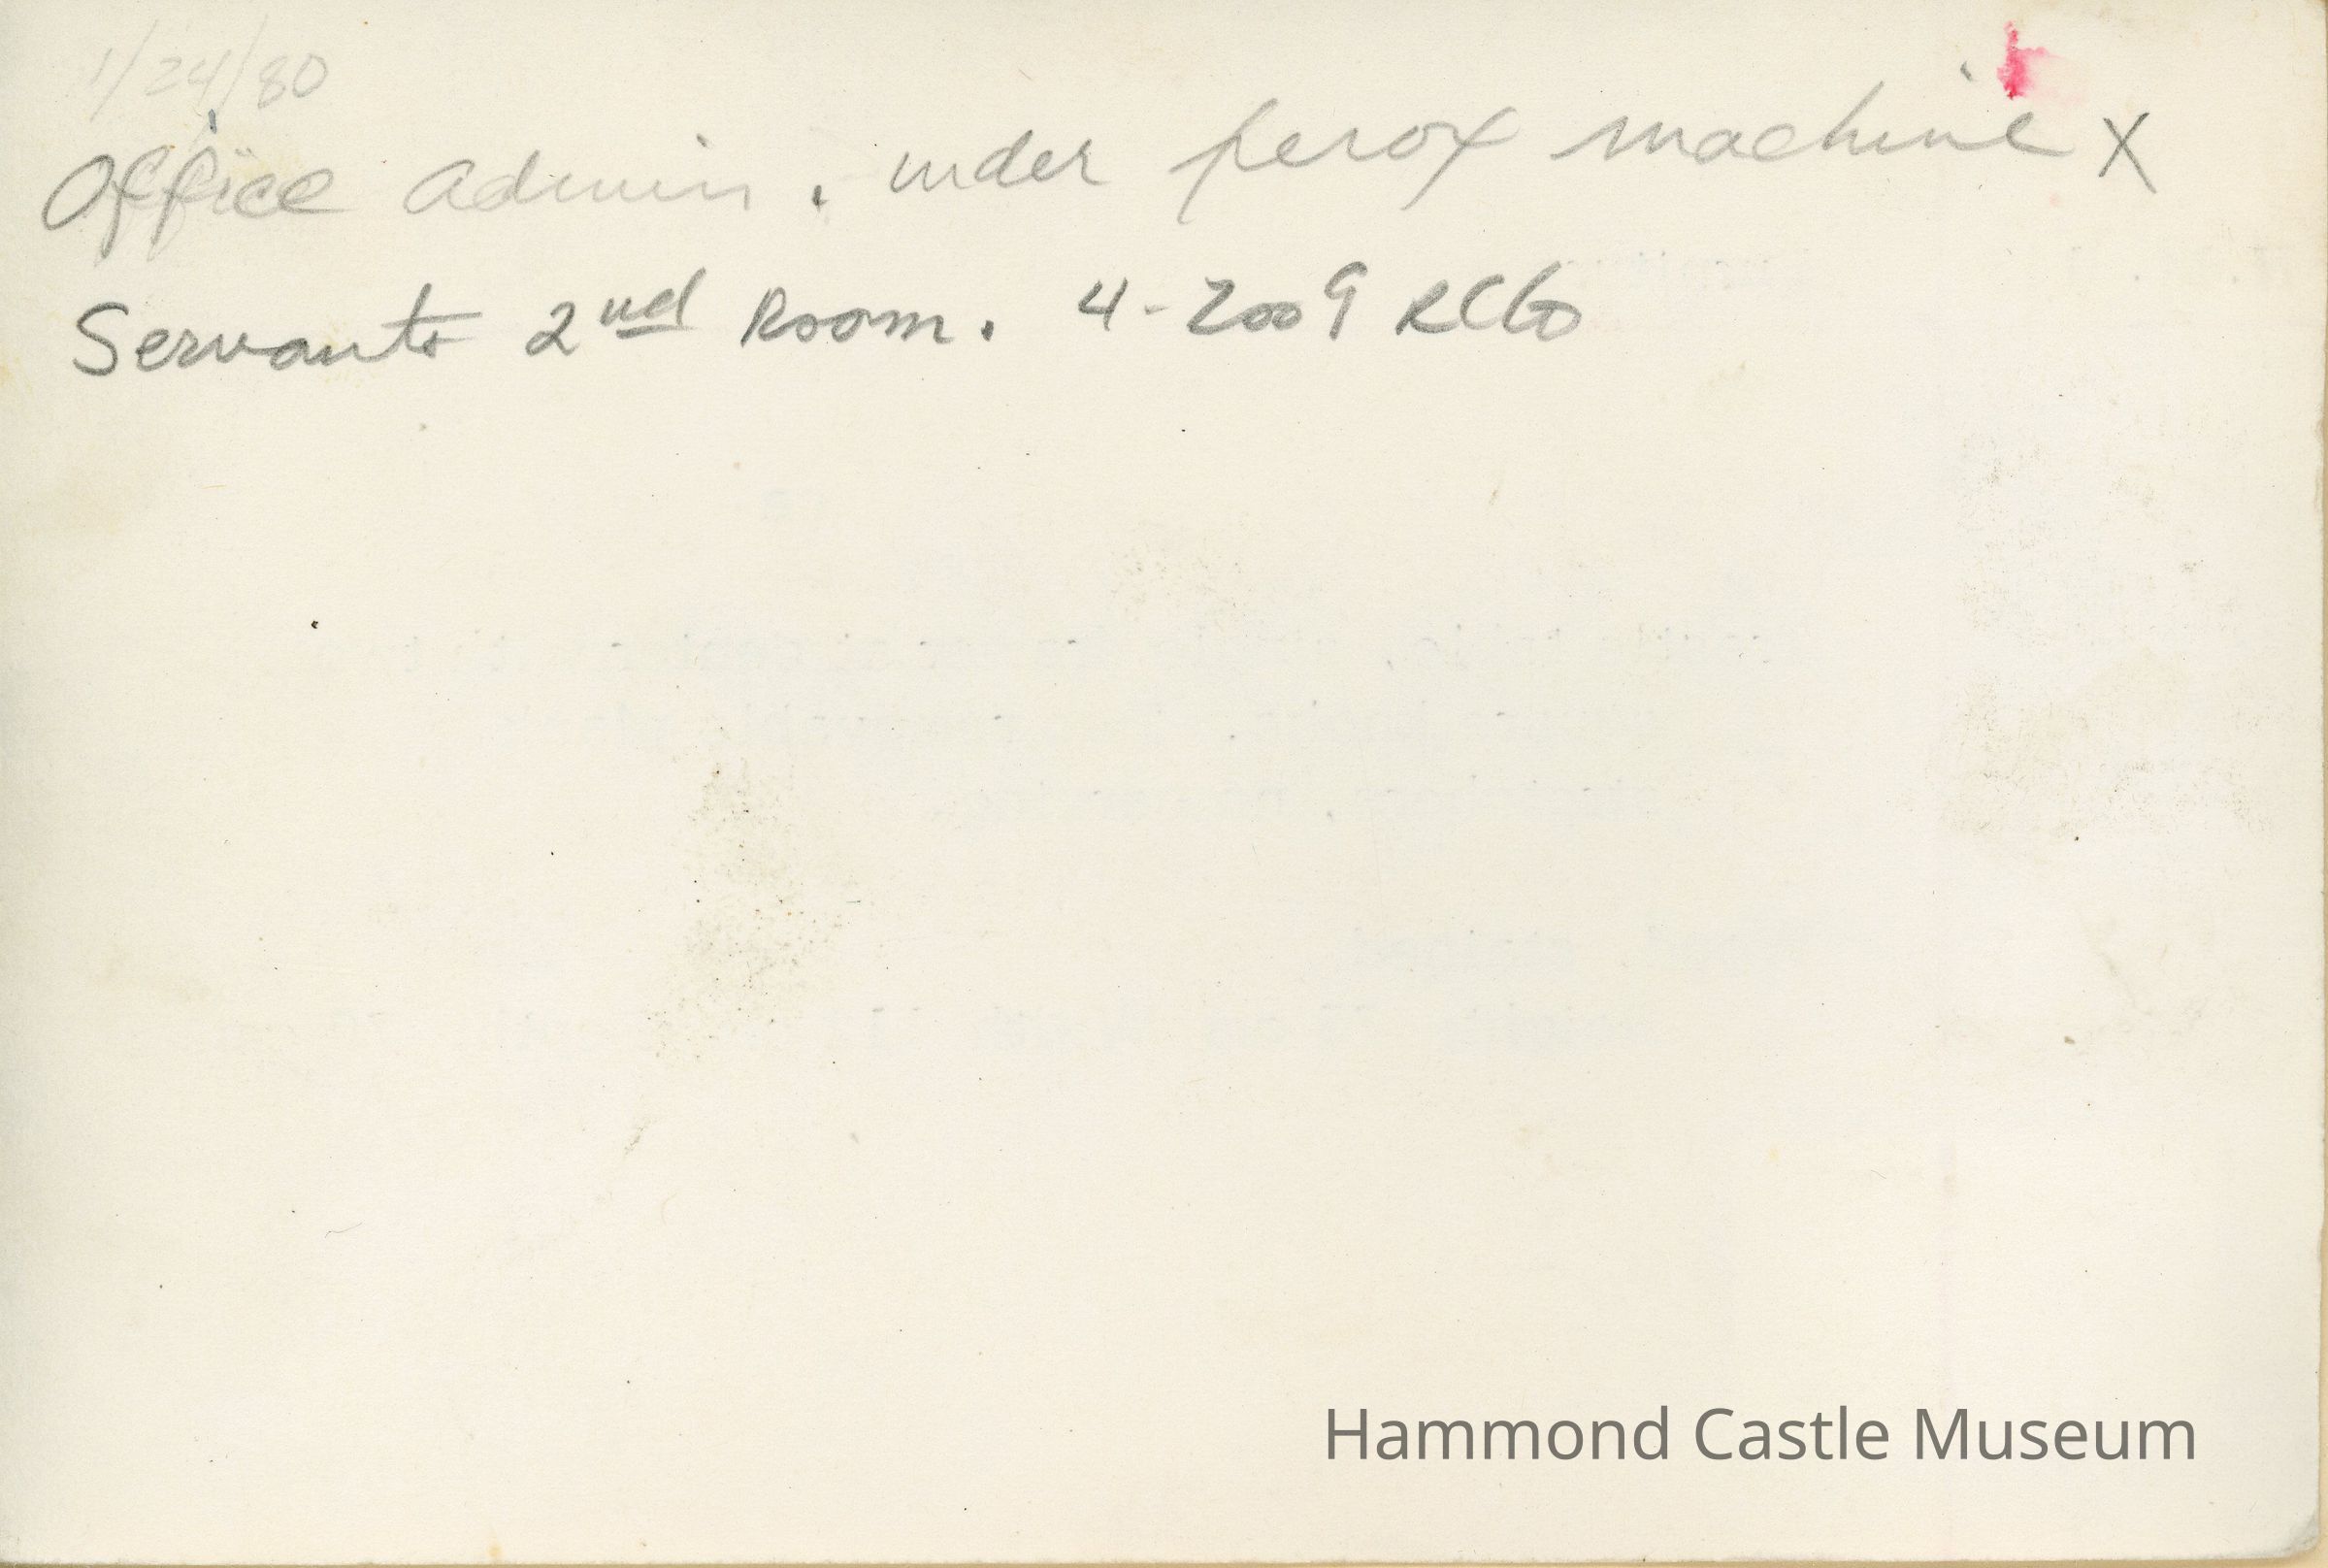 1/24/80
Office Admin. under perox machine X
Servants 2nd Room. 4-2009 RCG
Hammond Castle Museum